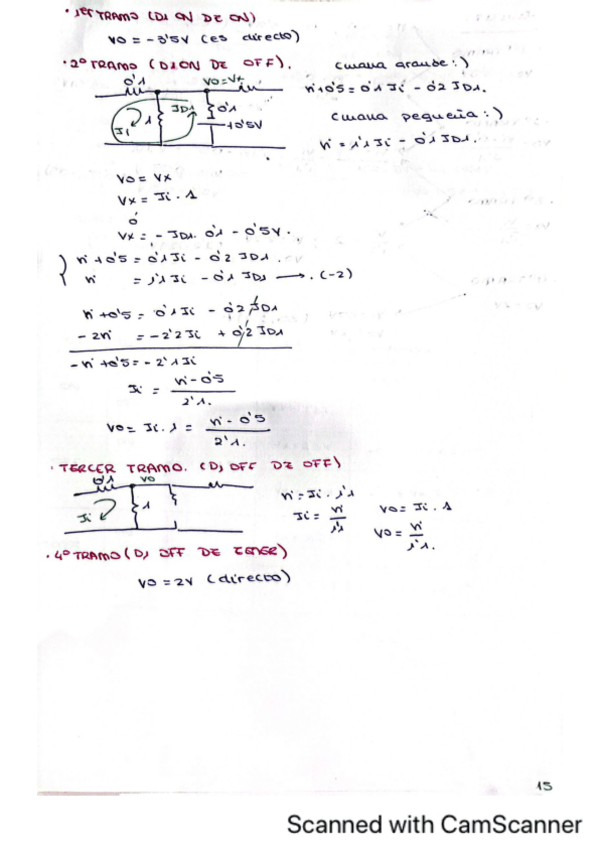 · 1er TRAMO (D1 ON DZ ON)
VO = -3'5V (es directo)
· 2º TRAMO (D1 ON DZ OFF).
0'1
VO=Vx
JD1
0'1
1
Ji
+0'5V
(malla grande:)
Vi+0'5 = 0'1 Ji - 0'2 JD1.
(malla pequeña:)
Vi = 1'1 Ji - 0'1 JD1.
VO = Vx
Vx = Ji · 1
ó
Vx = - JD1 · 0'1 - 0'5V.
Vi +0'5 = 0'1 Ji - 0'2 JD1.
Vi = 1'1 Ji - 0'1 JD1 → · (-2)
Vi +0'5 = 0'1 Ji - 0'2 JD1
- 2Vi = -2'2 Ji + 0'2 JD1
-Vi +0'5 = -2'1 Ji
Ji = Vi - 0'5 / 2'1.
VO = Ji · 1 = Vi - 0'5 / 2'1.
· TERCER TRAMO. (D1 OFF DZ OFF)
0'1
VO
1
Ji
Vi = Ji · 1'1
Ji = Vi / 1'1
VO = Ji · 1
VO = Vi / 1'1.
· 4º TRAMO (D1 OFF DZ ZENER)
VO = 2V (directo)
15
Scanned with CamScanner